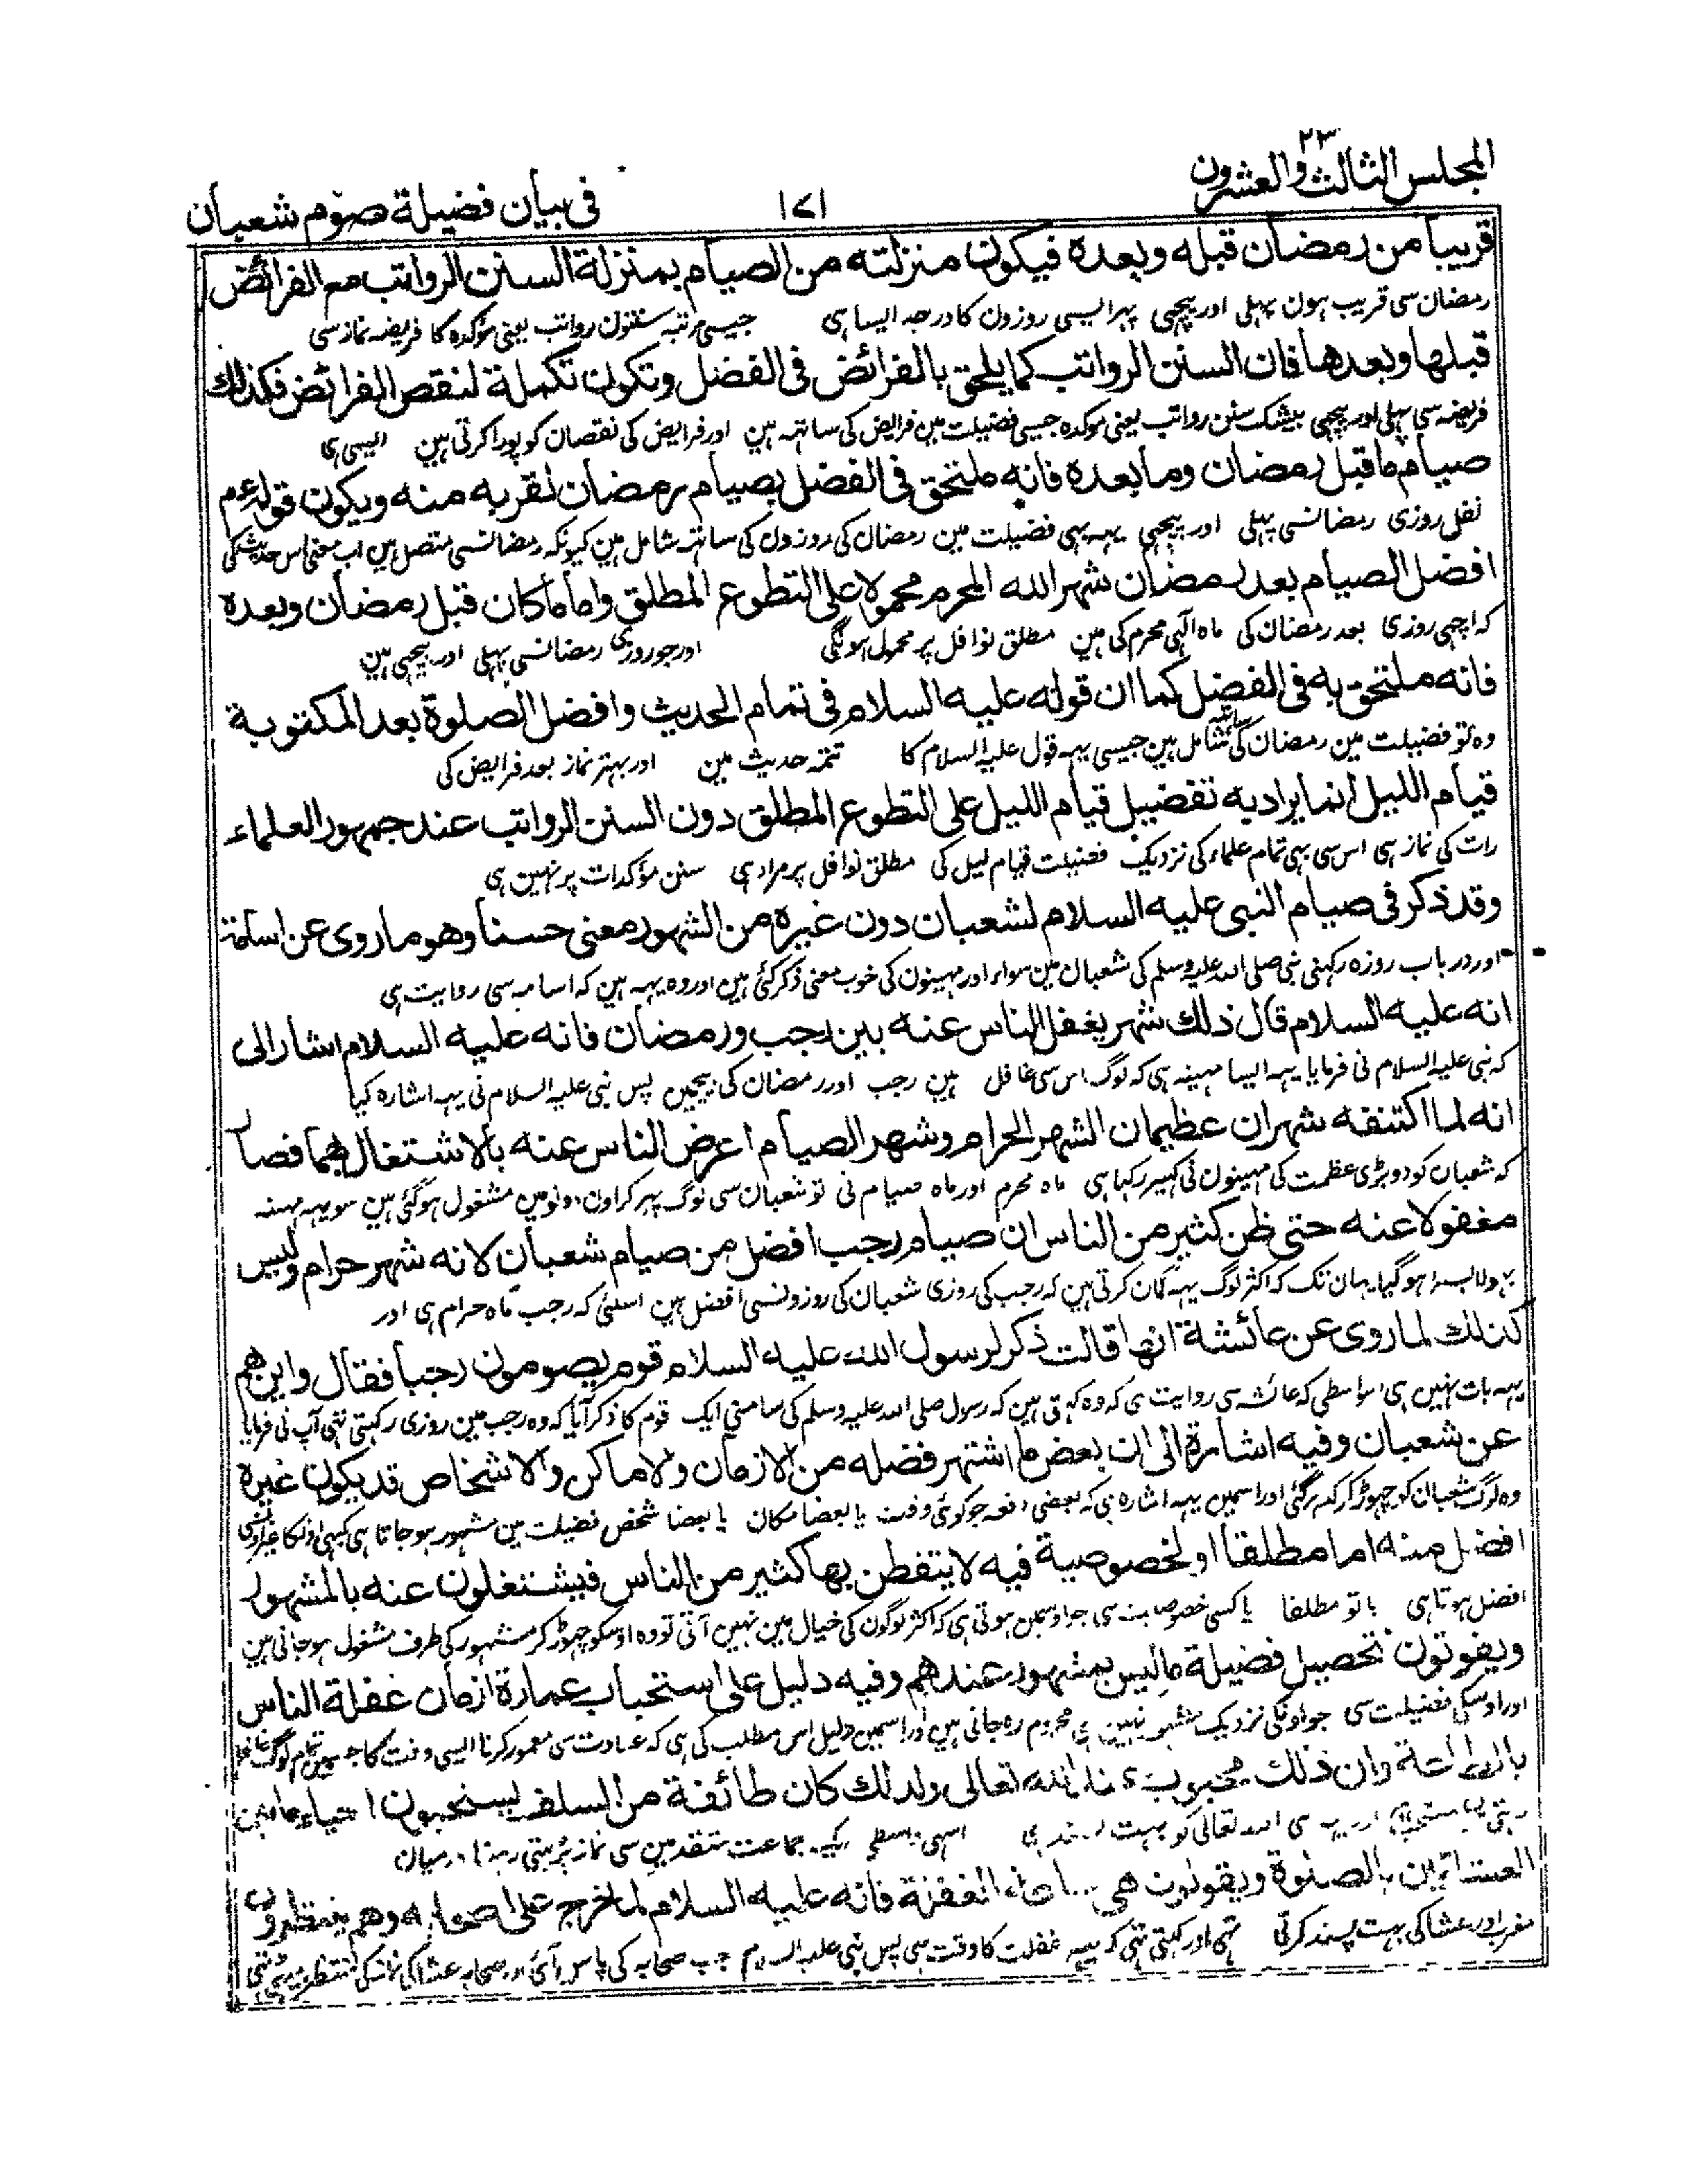 المجلس الثالث والعشرون ٢٣
١٧١
فی بیان فضیلة صوم شعبان
قریبا من رمضان قبله وبعده فیکون منزلته من الصیام بمنزلة السنن الرواتب مع الفرائض
رمضان سی قریب ہون پہلی اور پیچہی پہر ایسی روزون کا درجہ ایسا ہی جیسی مرتبہ سنتون رواتب یعنی مؤکدہ کا فریضہ نماز سی
قبلها وبعدها فان السنن الرواتب کما یلحق بالفرائض فی الفضل وتکون تکملة لنقص الفرائض فکذلك
فریضہ سی پہلی اور پیچہی بیشک سنن رواتب یعنی موکدہ جیسی فضیلت مین فرایض کی ساتہہ ہین اور فرایض کی نقصان کو پورا کرتی ہین ایسی ہی
صیام ما قبل رمضان وما بعده فانه ملتحق فی الفضل بصیام رمضان لقربه منه ویکون قوله عم
نفل روزی رمضانسی پہلی اور پیچہی یہہ بہی فضیلت مین رمضان کی روزون کی ساتہہ شامل ہین کیونکہ رمضانسی متصل ہین اب معنی اس حدیث کی
افضل الصیام بعد رمضان شهر الله المحرم محمولا علی التطوع المطلق واما ما کان قبل رمضان وبعده
کہ اچہی روزی بعد رمضان کی ماہ الٰہی محرم کی ہین مطلق نوافل پر محمول ہونگی اور جو روزی رمضانسی پہلی اور پیچہی ہین
فانه ملتحق به فی الفضل کما ان قوله علیه السلام فی تمام الحدیث وافضل الصلوة بعد المکتوبة
وہ تو فضیلت مین رمضان کی ساتہہ شامل ہین جیسی یہہ قول علیہ السلام کا تتمہ حدیث مین اور بہتر نماز بعد فرایض کی
قیام اللیل انما یراد به تفضیل قیام اللیل علی التطوع المطلق دون السنن الرواتب عند جمهور العلماء
رات کی نماز ہی اس سی بہی تمام علماء کی نزدیک فضیلت قیام لیل کی مطلق نوافل پر مراد ہی سنن مؤکدات پر نہین ہی
وقد ذکر فی صیام النبی علیه السلام لشعبان دون غیره من الشهور معنی حسنا وهو ما روی عن اسامة
اور در باب روزہ رکہنی نبی صلی اللہ علیہ وسلم کی شعبان مین سوار اور مہینون کی خوب معنی ذکر کئی ہین اور وہ یہہ ہین کہ اسامہ سی روایت ہی
انه علیه السلام قال ذلك شهر یغفل الناس عنه بین رجب ورمضان فانه علیه السلام اشار الی
کہ نبی علیہ السلام نی فرمایا یہہ ایسا مہینہ ہی کہ لوگ اس سی غافل ہین رجب اور رمضان کی بیچین پس نبی علیہ السلام نی یہہ اشارہ کیا
انه لما اکتنفه شهران عظیمان الشهر الحرام وشهر الصیام اعرض الناس عنه بالاشتغال بهما فصار
کہ شعبان کو دو بڑی عظمت کی مہینون نی گہیر رکہا ہی ماہ محرم اور ماہ صیام نی تو شعبان سی لوگ پہر کر اون دونومین مشغول ہو گئی ہین سو یہہ مہینہ
مغفولا عنه حتی ظن کثیر من الناس ان صیام رجب افضل من صیام شعبان لانه شهر حرام ولیس
بہولا بسرا ہو گیا یہان تک کہ اکثر لوگ یہہ گمان کرتی ہین کہ رجب کی روزی شعبان کی روزونسی افضل ہین اسلئی کہ رجب ماہ حرام ہی اور
کذلك لما روی عن عائشة انها قالت ذکر لرسول الله علیه السلام قوم یصومون رجبا فقال واین هم
یہہ بات نہین ہی اسواسطی کہ عائشہ سی روایت ہی کہ وہ کہتی ہین کہ رسول صلی اللہ علیہ وسلم کی سامنی ایک قوم کا ذکر آیا کہ وہ رجب مین روزی رکہتی تہی آپ نی فرمایا
عن شعبان وفیه اشارة الی ان بعض ما اشتهر فضله من الازمان والاماکن والاشخاص قد یکون غیره
وہ لوگ شعبان کو چہوڑ کر کدہر گئی اور اسمین یہہ اشارہ ہی کہ بعضی دفعہ جو کوئی وقت یا بعضا مکان یا بعضا شخص فضیلت مین مشہور ہو جاتا ہی کبہی اونکا غیر
افضل منه اما مطلقا او لخصوصیة فیه لا یتفطن بها کثیر من الناس فیشتغلون عنه بالمشهور
افضل ہوتا ہی یا تو مطلقا یا کسی خصوصیت سی جو اوسمین ہوتی ہی کہ اکثر لوگون کی خیال مین نہین آتی تو وہ اوسکو چہوڑ کر مشہور کی طرف مشغول ہو جاتی ہین
ویفوتون تحصیل فضیلة ما لیس بمشهور عندهم وفیه دلیل علی استحباب عمارة ازمان غفلة الناس
اور اوسکی فضیلت سی جو اونکی نزدیک مشہور نہین ہی محروم رہ جاتی ہین اور اسمین دلیل اس مطلب کی ہی کہ عبادت سی معمور کرنا ایسی وقت کا جسمین تمام لوگ غافل
بالطاعة وان ذلك محبوب عند الله تعالی ولذلك کان طائفة من السلف یستحبون احیاء ما بین
اللہ تعالی کو بہت پسند ہی اسہی واسطی ایک جماعت متقدمین سی نماز پڑہتی رہنا درمیان
العشائین بالصلوة ویقولون هی ساعة الغفلة فانه علیه السلام لما خرج علی اصحابه وهم ینتظرون
مغرب اور عشا کی بہت پسند کرتی تہی اور کہتی تہی کہ یہہ غفلت کا وقت ہی پس نبی علیہ السلام جب صحابہ کی پاس آئی اور صحابہ عشا کی نماز کی منتظر